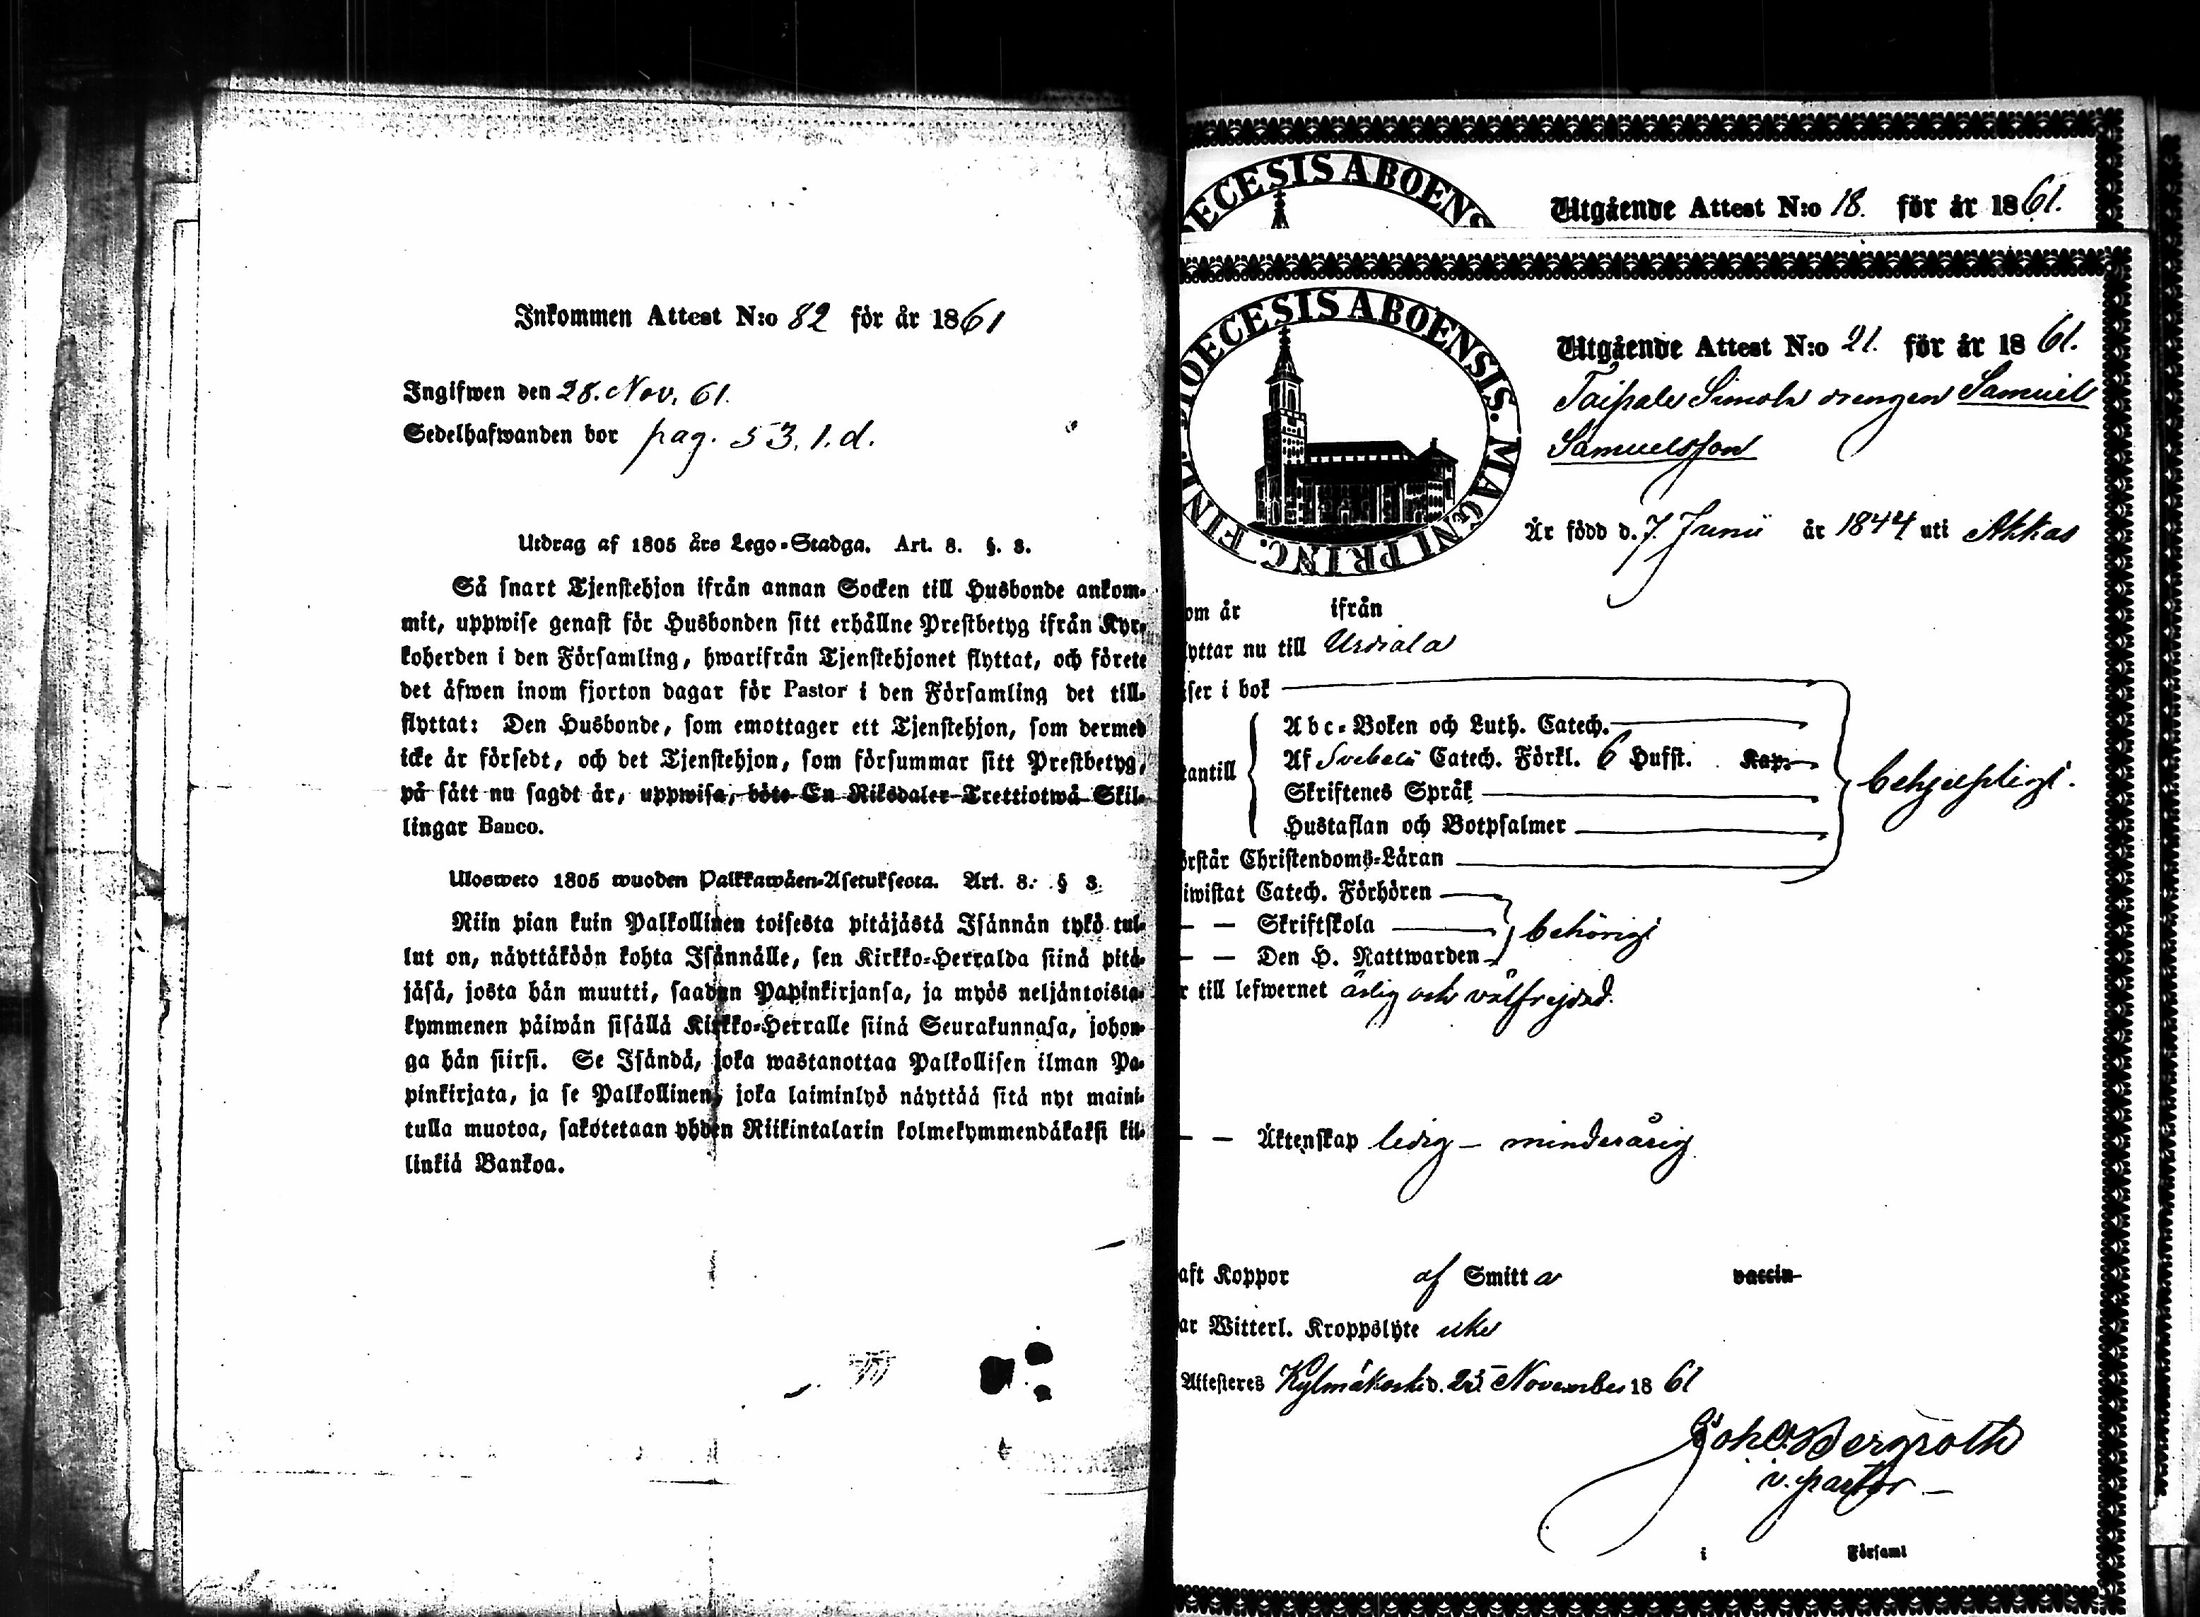 Inkommen Attest N:o 82 för år 1861
Ingifwen den 28. Nov. 61.
Sedelhafwanden bor pag. 53. 1. d.
Utdrag af 1805 års Lego-Stadga. Art. 8. §. 3.
Så snart Tjenstehjon ifrån annan Socken till Husbonde ankom-
mit, uppwise genast för Husbonden sitt erhållne Prestbetyg ifrån Kyr-
koherden i den Församling, hwarifrån Tjenstehjonet flyttat, och förete
det äfwen inom fjorton dagar för Pastor i den Församling det till-
flyttat: Den Husbonde, som emottager ett Tjenstehjon, som dermed
icke är försedt, och det Tjenstehjon, som försummar sitt Prestbetyg,
på sätt nu sagdt är, uppwisa, böte En Riksdaler Trettiotwå Skil-
lingar Banco.
Ulosweto 1805 wuoden Palkkawäen-Asetuksesta. Art. 8. § 3.
Niin pian kuin Palkollinen toisesta pitäjästä Isännän tykö tul-
lut on, näyttäköön kohta Isännälle, sen Kirkko-Herralda siinä pitä-
jäsä, josta hän muutti, saadun Papinkirjansa, ja myös neljäntoista-
kymmenen päiwän sisällä Kirkko-Herralle siinä Seurakunnasa, johon-
ga hän siirsi. Se Isändä, joka wastanottaa Palkollisen ilman Pa-
pinkirjata, ja se Palkollinen, joka laiminlyö näyttää sitä nyt maini-
tulla muotoa, sakotetaan yhden Riikintalarin kolmekymmendäkaksi kil-
linkiä Bankoa.
DIOECESIS ABOENS
Utgående Attest N:o 18. för år 1861.
DIOECESIS ABOENSIS. MAGNI PRINC. FINL.
Utgående Attest N:o 21. för år 1861.
Taipale Simola drengen Samuel
Samuelsson
Är född d. 7. Junii år 1844 uti Akkas
om år ifrån
lyttar nu till Urdiala
iser i bok
Abc-Boken och Luth. Catech.
antill Af Svebelii Catech. Förkl. 6 Hufst. Kap.
Skriftenes Språk
Hustaflan och Botpsalmer
behjelpligt.
örstår Christendoms-Läran
iwistat Catech. Förhören
— — Skriftskola
behörigt
— — Den H. Nattwarden
r till lefwernet ärlig och välfrejdad.
— — Äktenskap ledig – minderårig
aft Koppor af Smitta vaccin
ar Witterl. Kroppslyte icke
Attesteres Kylmäkoski d. 25 November 1861
Joh. O. Bergroth
v. pastor
i Församl